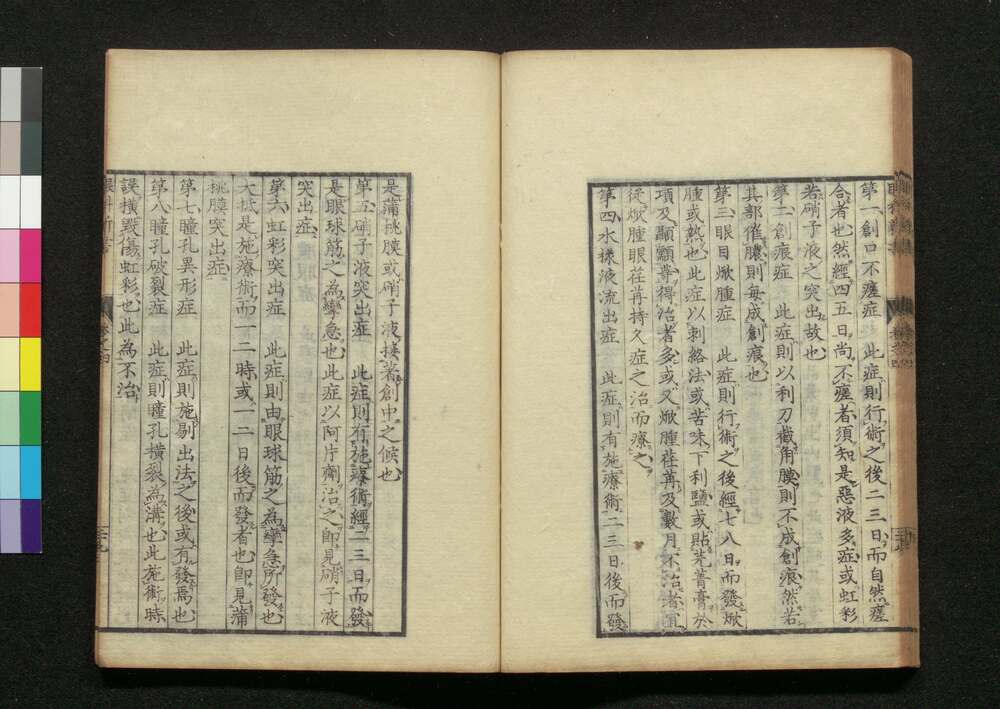 第一創口不癒症　此症則行術之後二三日而自然癒
合者也然經四五日尚不癒者須知是惡液多症或虹彩
若硝子液之突出故也
第二創痕症　此症則以利刀截角膜則不成創痕然若
其部釀膿則每成創痕也
第三眼目焮腫症　此症則行術之後經七八日而發焮
腫或熱也此症以刺絡法或苦味下利鹽或貼芫菁膏於
項及顳顬等得治者多或又焮腫荏苒及數月不治者宜
從焮腫眼荏苒持久症之治而療之
第四水樣液流出症　此症則有施療術二三日後而發
是蒲桃膜或硝子液接著創中之候也
第五硝子液突出症　此症則有施療術經二三日而發
是眼球筋之為攣急也此症以阿片劑治之即見硝子液
突出症
第六虹彩突出症　此症則由眼球筋之為攣急所發也
大抵是施療術而一二時或一二日後而發者也即見蒲
桃膜突出症
第七瞳孔異形症　此症則施剔出法之後或有發焉也
第八瞳孔破裂症　此症則瞳孔橫裂為溝也此施術時
誤橫毀傷虹彩也此為不治